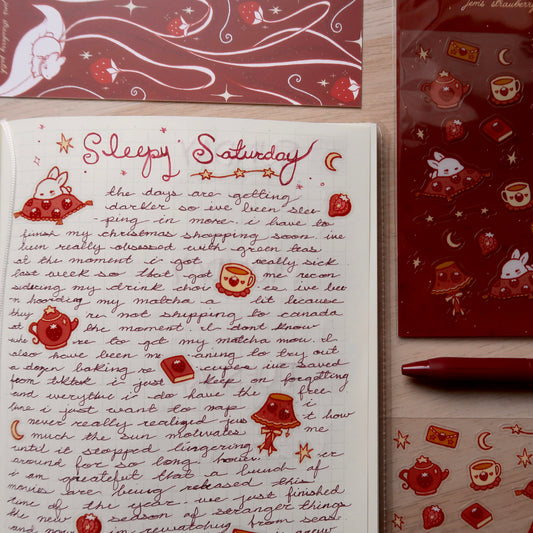 jems strawberry
Sleepy Saturday
the days are getting
darker so ive been slee
ping in more. i have to
finish my christmas shopping soon. ive
been really obsessed with green teas
at the moment i got really sick
last week so that got me recon
sidering my drink choi ces ive bee
n hoarding my matcha a lit because
they re not shipping to canada
at the moment. i dont know
whe re to get my matcha now. i
also have been me aning to try out
a dozen baking re cipes ive saved
from tiktok i just keep on forgetting
and everytime i do have the free
time i just want to nap i
never really realized jus t how
much the sun motivates me
until it stopped lingering
around for so long. howev er
i am grateful that a bunch of
movies are being released this
time of the year. we just finished
the new season of stranger things
and now im rewatching from seas